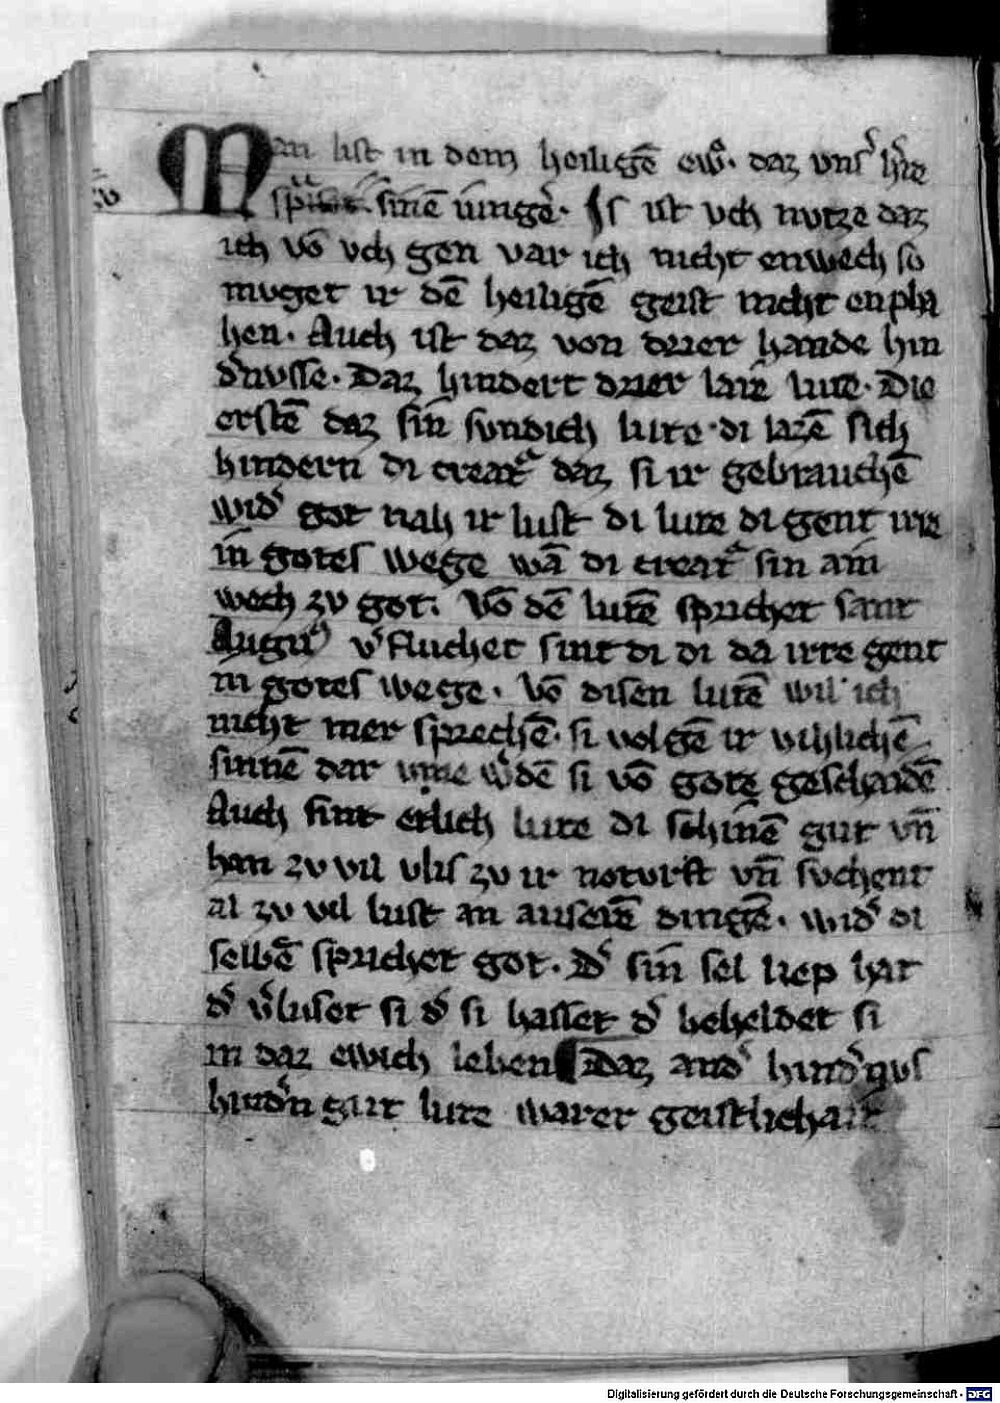 Man list in dem heiligē ew̄. daz vns̄ h̄re
zv
sinē iūngē. Is ist vch nutze daz
ich vō vch gen var ich nicht enwech so
muget ir dē heiligē geist nicht enpha
hen. Auch ist daz von drier hande hin
d̄nvsse. Daz hindert drier laie lute. Die
erstē daz sin sundich lute. di lazē sich
hindern di creat̄ daz si ir gebrauchē
wid̄ got nah ir lust di lute di gent irre
in gotes wege wā di creat̄ sin ain
wech zv got. Vō dē lutē sprichet sant
Augu᾽ v̄fluchet sint di di da irre gent
in gotes wege. Vō disen lutē wil ich
nicht mer sprechē. si volgē ir vihlichē
sinnē dar vme w̄dē si vō gote geschaidē
Auch sint etlich lute di schinē gut vn̄
han zv vil vlis zv ir noturft vn̄ suchent
al zv vil lust an auserē dingē. wid̄ di
selbē sprichet got. D̄ sin sel liep hat
d̄ v̄luset si d̄ si hasset d̄ beheldet si
in daz ewich leben Daz and̄ hind̄nvs
hind̄n gut lute warer geistlichait
Digitalisierung gefördert durch die Deutsche Forschungsgemeinschaft - DFG